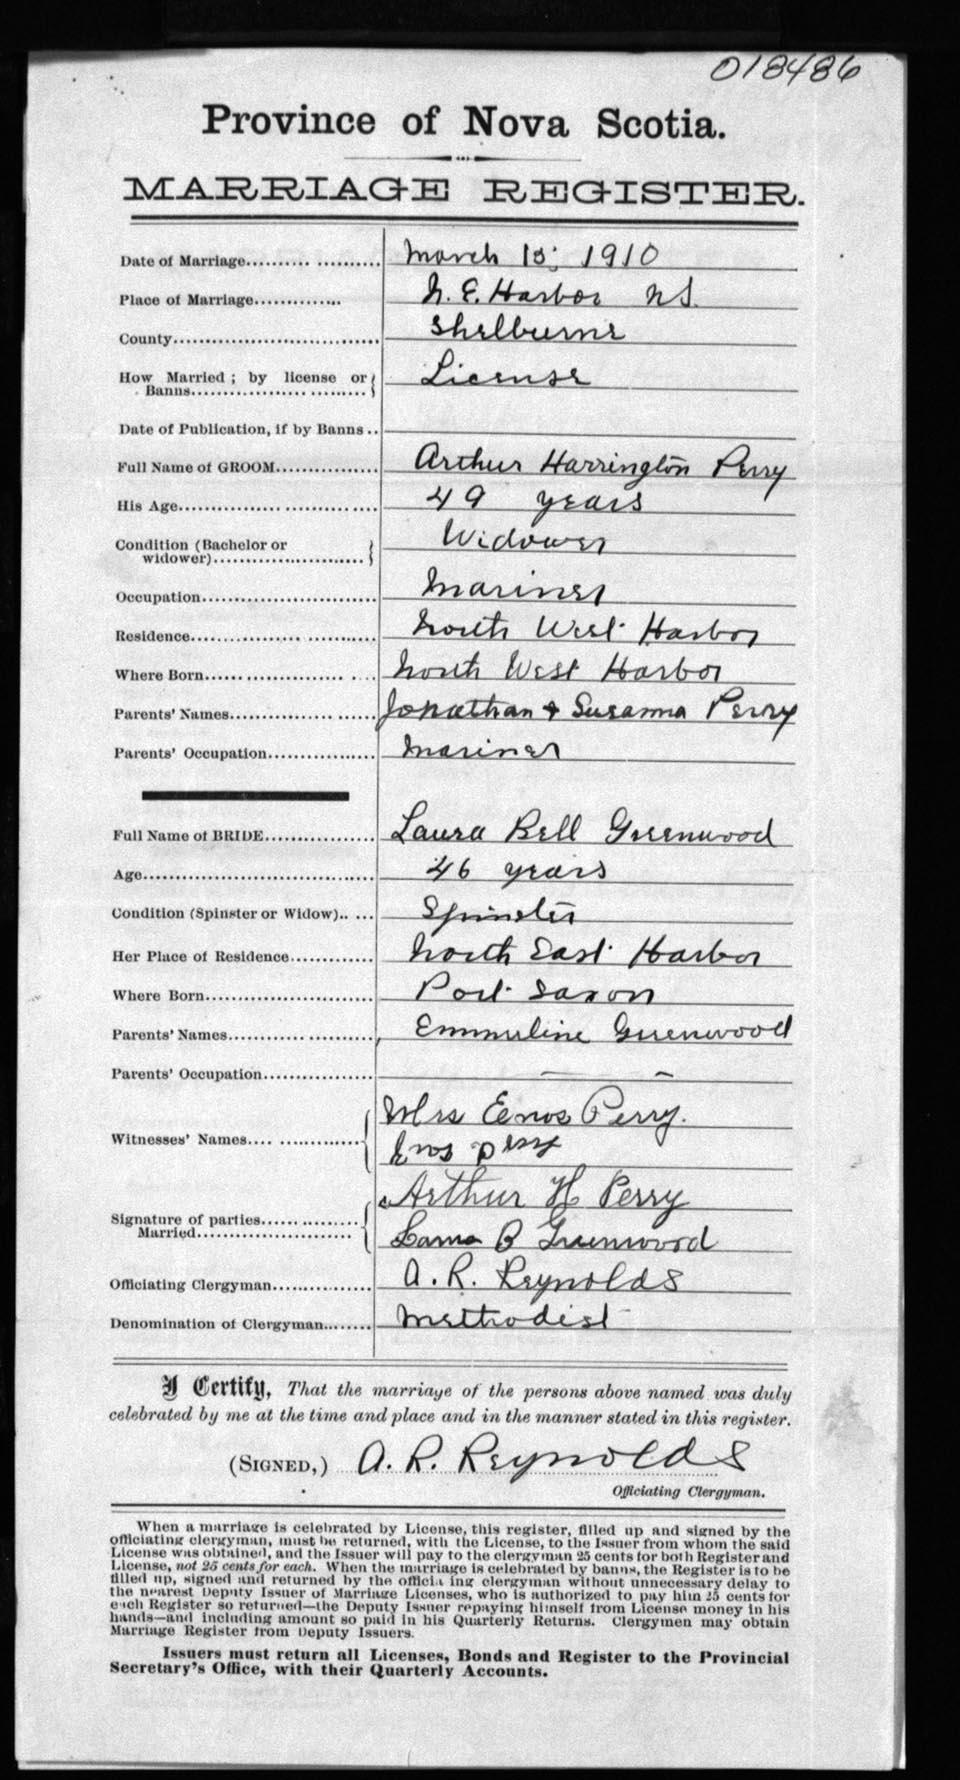 018486
Province of Nova Scotia.
MARRIAGE REGISTER.
Date of Marriage.................... March 15, 1910
Place of Marriage............. N. E. Harbor N.S.
County.................................... Shelburne
How Married ; by license or
Banns................................ License
Date of Publication, if by Banns ..
Full Name of GROOM................. Arthur Harrington Perry
His Age.................................. 49 years
Condition (Bachelor or
widower)............................ Widower
Occupation.............................. Mariner
Residence................................ North West Harbor
Where Born............................. North West Harbor
Parents' Names........................ Jonathan & Susanna Perry
Parents' Occupation.................. Mariner
Full Name of BRIDE.................. Laura Bell Greenwood
Age....................................... 46 years
Condition (Spinster or Widow)..... Spinster
Her Place of Residence.............. North East Harbor
Where Born............................. Port Saxon
Parents' Names........................ Emmuline Greenwood
Parents' Occupation..................
Witnesses' Names.................... Mrs Eenos Perry.
Enos perry
Signature of parties.................. Arthur H Perry
Married............................ Laura B Greenwood
Officiating Clergyman................ A. R. Reynolds
Denomination of Clergyman........ Methodist
I Certify, That the marriage of the persons above named was duly
celebrated by me at the time and place and in the manner stated in this register.
(SIGNED,) A. R. Reynolds
Officiating Clergyman.
When a marriage is celebrated by License, this register, filled up and signed by the
officiating clergyman, must be returned, with the License, to the Issuer from whom the said
License was obtained, and the Issuer will pay to the clergyman 25 cents for both Register and
License, not 25 cents for each. When the marriage is celebrated by banns, the Register is to be
filled up, signed and returned by the officia ing clergyman without unnecessary delay to
the nearest Deputy Issuer of Marriage Licenses, who is authorized to pay him 25 cents for
each Register so returned—the Deputy Issuer repaying himself from License money in his
hands—and including amount so paid in his Quarterly Returns. Clergymen may obtain
Marriage Register from Deputy Issuers.
Issuers must return all Licenses, Bonds and Register to the Provincial
Secretary's Office, with their Quarterly Accounts.